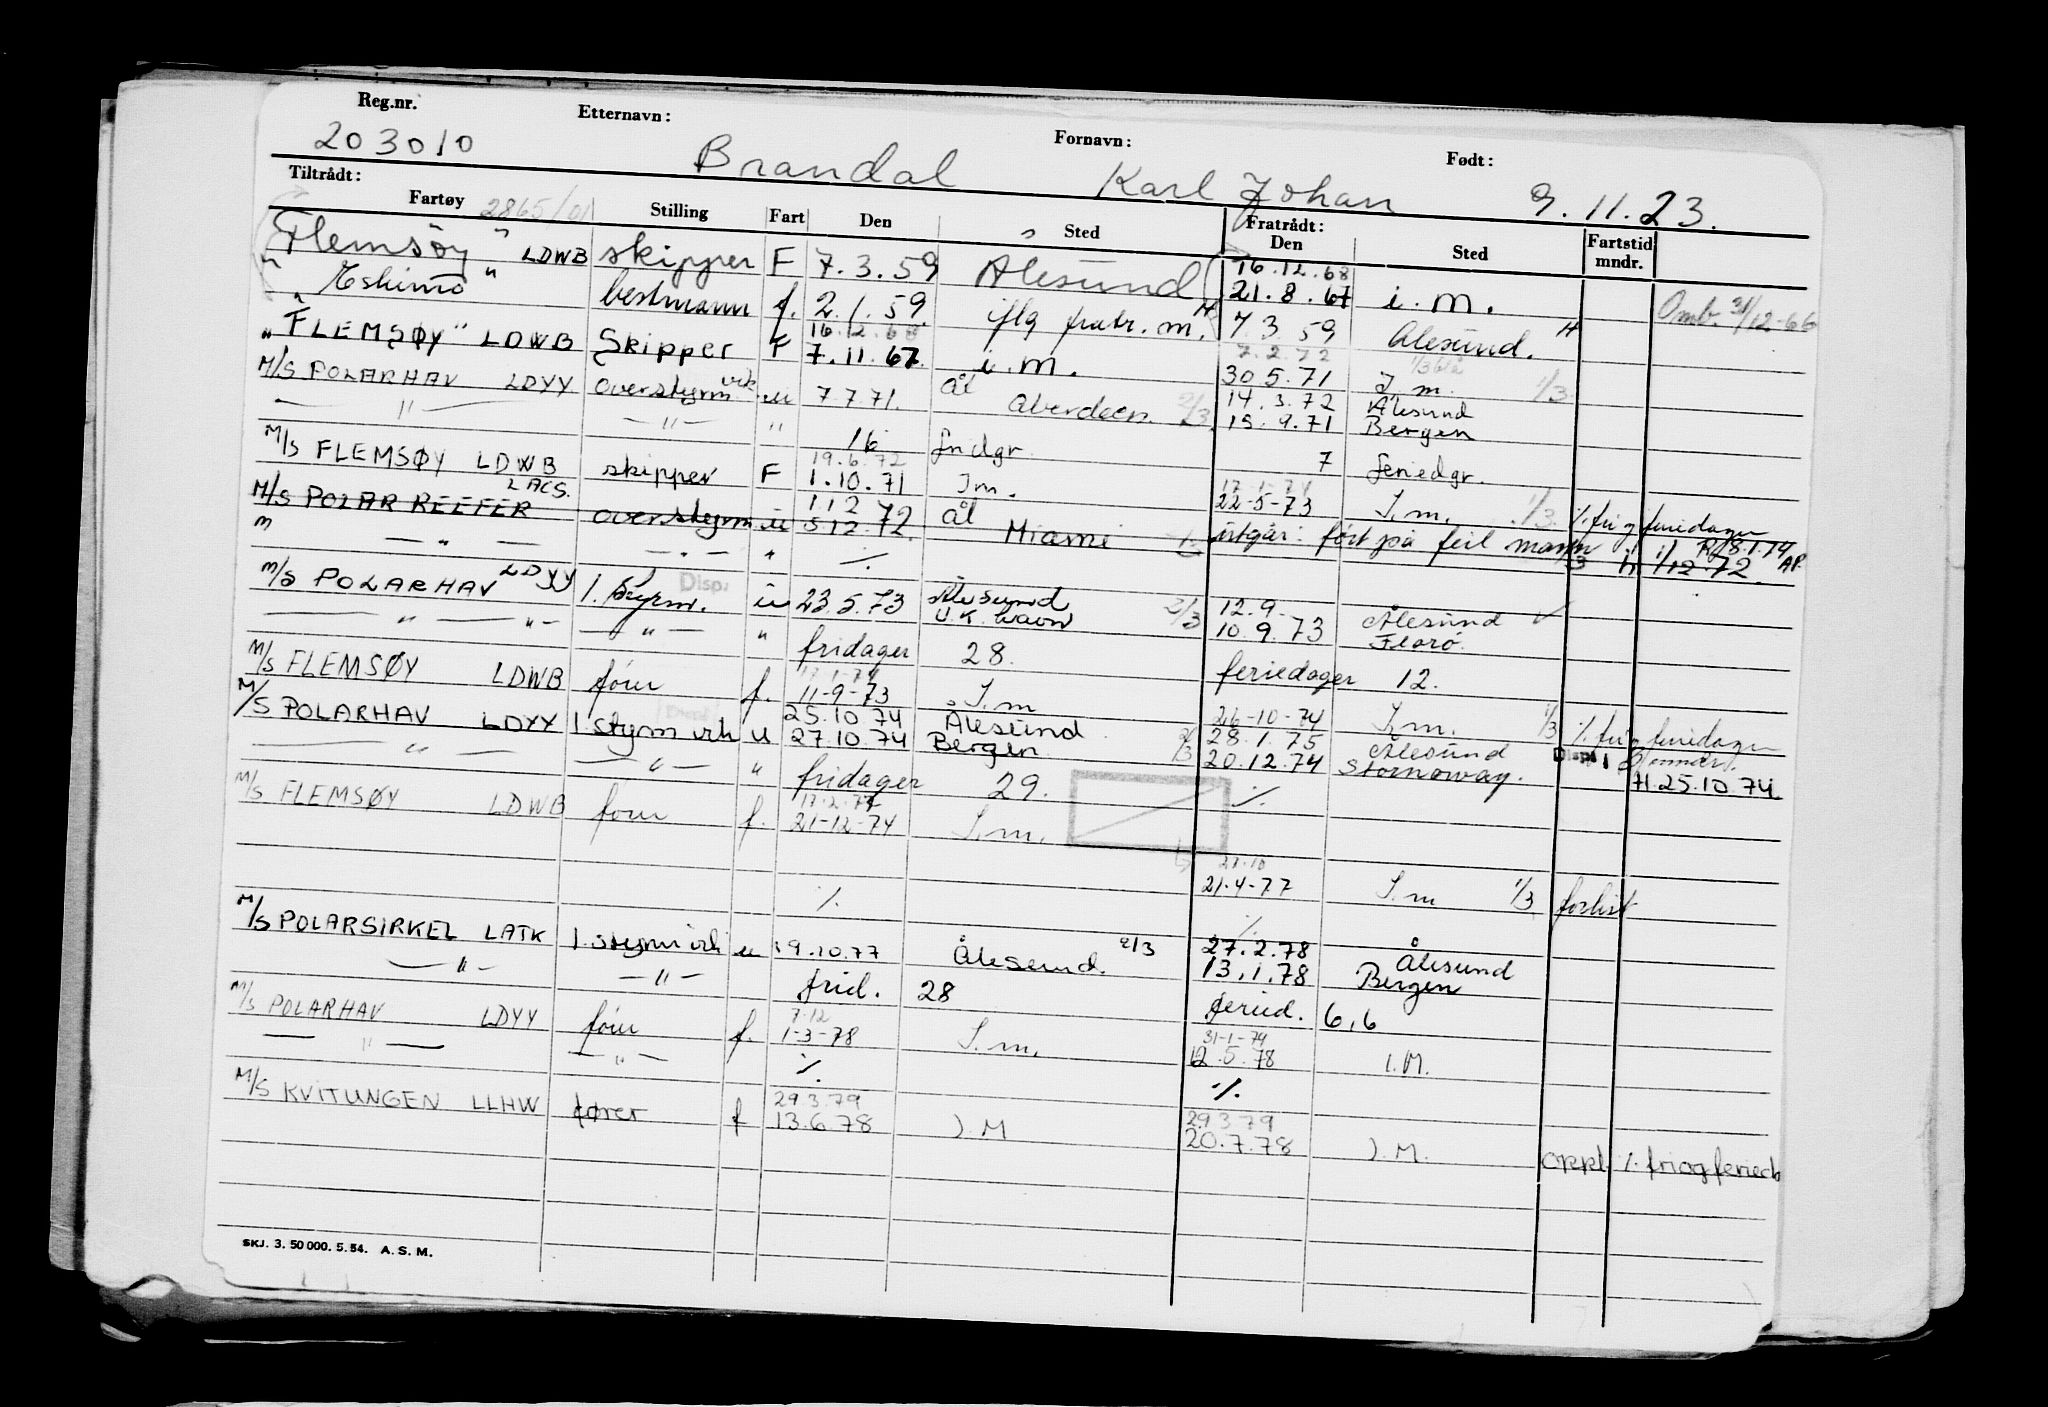 Reg.nr. Etternavn: Fornavn: Født:
203010 Brandal Karl Johan 9.11.23.
Tiltrådt: Fratrådt:
Fartøy 2865/01 Stilling Fart Den Sted Den Sted Fartstid mndr.
"Flemsøy" LDWB skipper F 7.3.59 Ålesund 16.12.68 21.8.67 i.m.
"Eskimo" bestmann f. 2.1.59. iflg fratr. m. 7 3 59 Ålesund. Omb. 31/12-66
"FLEMSØY" LDWB Skipper F 16.12.68 7.11.67. i.m. 7.2.72 30.5.71 I.m. 1/3
M/S POLARHAV LDYY overstyrm vik. u 7.7.71. Ål Aberdeen. 2/3 14.3.72 15.9.71 Ålesund Bergen
— " — — " — " 16 fridgr. 7 feriedgr.
M/S FLEMSØY LDWB skipper F 19.6.72 1.10.71 Im. 17-1-74 22-5-73 I.m. 1/3 ./. fri og feriedager
M/S POLAR REEFER LACS. overstyrm u 1.12 5.12.72. Ål Miami utgår: ført på feil mann 8.1.74 AP.
— " — — " — " ./. 1/12.72.
M/S POLARHAV LDYY 1. styrm. Disp. u 23.5.73 Ålesund U.K. havn 2/3 12.9. 10.9.73 Ålesund Florø
— " — " — — " — " fridager 28. feriedager 12.
M/S FLEMSØY LDWB fører f. 17-1-74 11-9-73 I.m 26-10-74 I.m. 1/3 ./. fri og feriedager
M/S POLARHAV LDYY 1 styrm vik u 25.10.74 27.10.74 Ålesund Bergen 2/3 28.1.75 20.12.74 Ålesund Stornoway. Disp.
— " — — " — " fridager 29. ./. 25.10.74
M/S FLEMSØY LDWB fører f. 21-12-74 I.m.
./. 21.10 21-4-77 I.m 1/3 forlist
M/S POLARSIRKEL LATK 1. styrm vik u 19.10.77 Ålesund. 2/3 ./. 27.2.78 13.1.78 Ålesund Bergen
— " — — " — frid. 28 feried. 6,6
M/S POLARHAV LDYY fører f. 7-12 1-3-78 I.m. 31-1-79 12.5.78 I.M.
— " — — " — ./. ./.
M/S KVITUNGEN LLHW fører f 29.3.79 13.6.78 I.M 29.3.79 20.7.78 I.M. oppl. ./. fri og feried
SKJ. 3. 50 000. 5. 54. A. S. M.